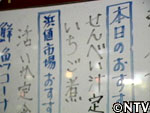 本日のおすす
せんべい汁定
いちご煮
浜値市場おすす
活いか定
鮮魚コーナ
©NTV